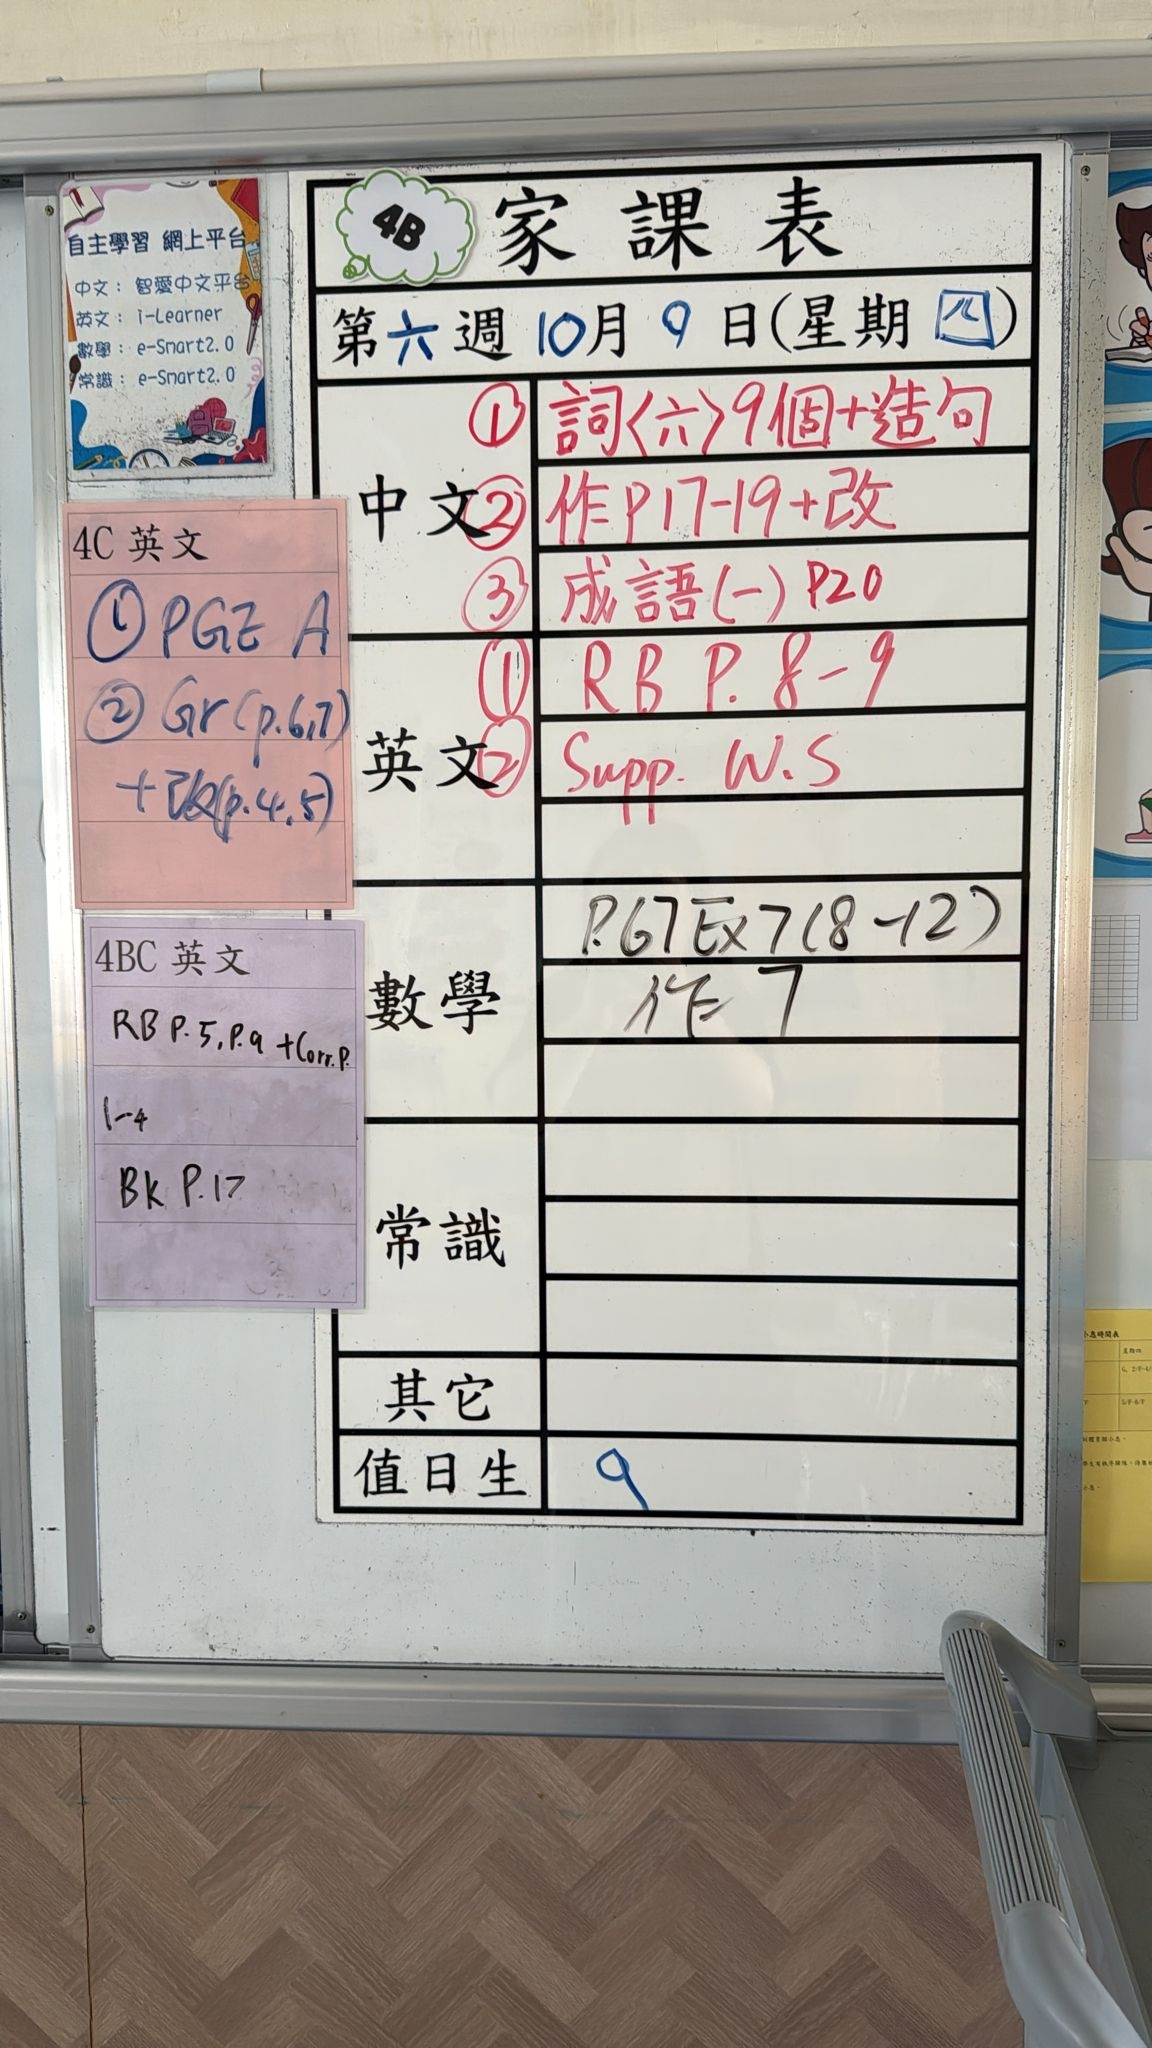 4B 家課表
第六週 10月9日(星期四)
自主學習 網上平台
中文：智愛中文平台
英文：i-Learner
數學：e-Smart2.0
常識：e-Smart2.0
中文
① 詞〈六〉9個+造句
② 作P17-19+改
③ 成語(一) P20
英文
① RB P. 8-9
② Supp. W.S
數學
P.67 Ex 7 (8-12)
作 7
常識
其它
值日生 9
4C 英文
① PGE A
② Gr (p.6,7)
+改(p.4,5)
4BC 英文
RB P.5, P.9 +Corr.P.
1-4
BK P.17
小息時間表
星期四